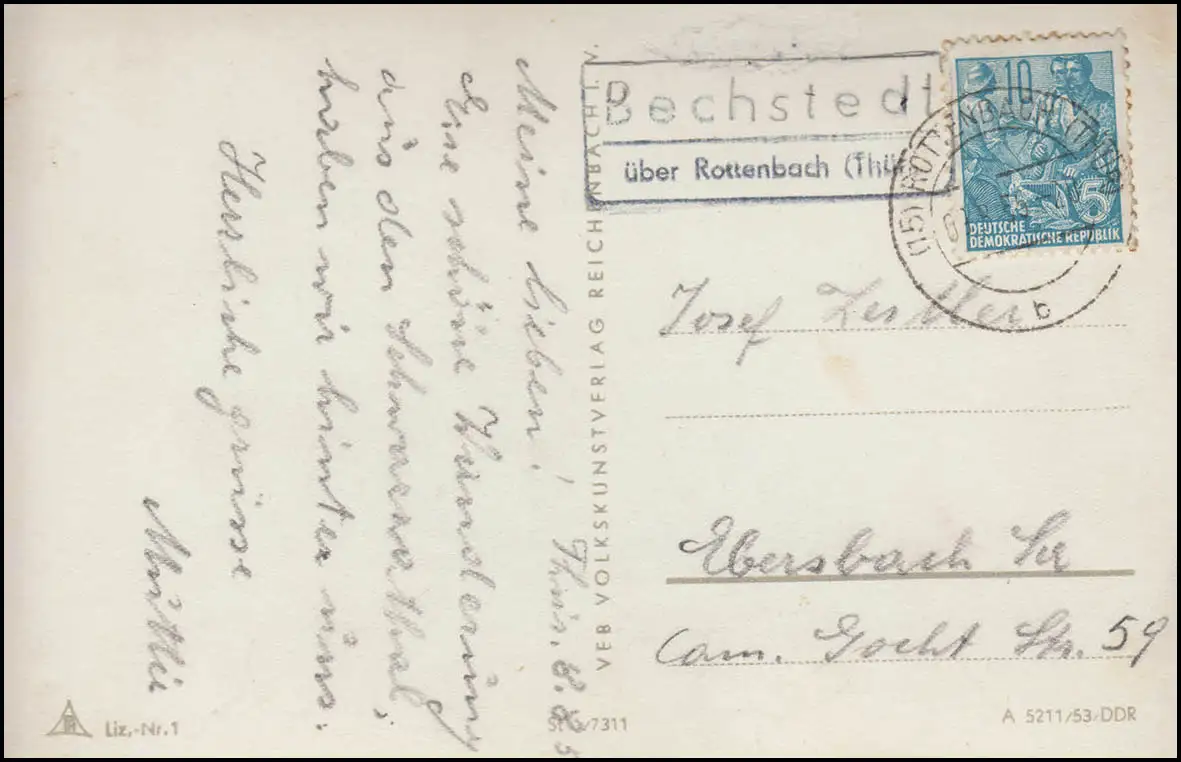 Meine Lieben!
Thür. 8.8.5
Eine schöne Wanderung
aus dem Schwarzathal,
haben wir hinter uns.
Herzliche grüsse
Mutti
VEB VOLKSKUNSTVERLAG REICHENBACH I. V.
Bechstedt
über Rottenbach (Thür
10
5
DEUTSCHE
DEMOKRATISCHE REPUBLIK
(15) ROTTENBACH (THÜR)
b
Josef
Ebersbach Sa
Cam. Gocht Str. 59
Liz.-Nr.1
/7311
A 5211/53/DDR